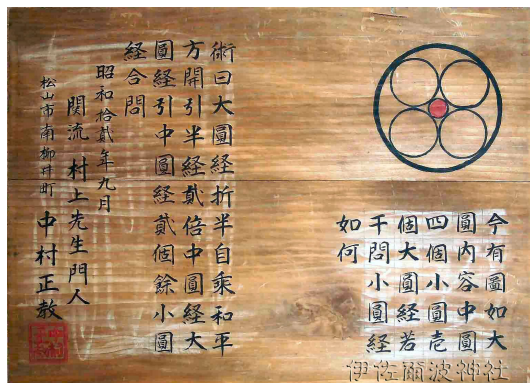 今有圖如大
圓内容中圓
四個小圓壱
個大圓経若
千問小圓経
如何
術曰大圓経折半自乗和平
方開引半経貳倍中圓経大
圓経引中圓経貳個餘小圓
経合問
昭和拾貳年九月
関流 村上先生門人
松山市南柳井町 中村正教
伊佐爾波神社